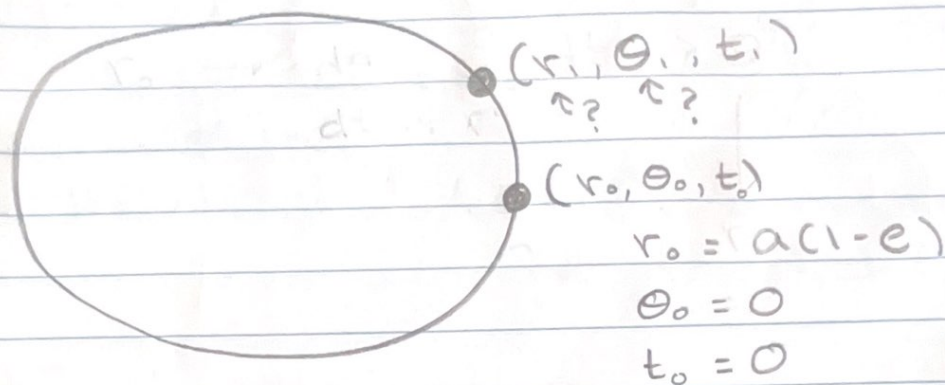 (r₁, θ₁, t₁)
↑? ↑?
(r₀, θ₀, t₀)
r₀ = a(1-e)
θ₀ = 0
t₀ = 0